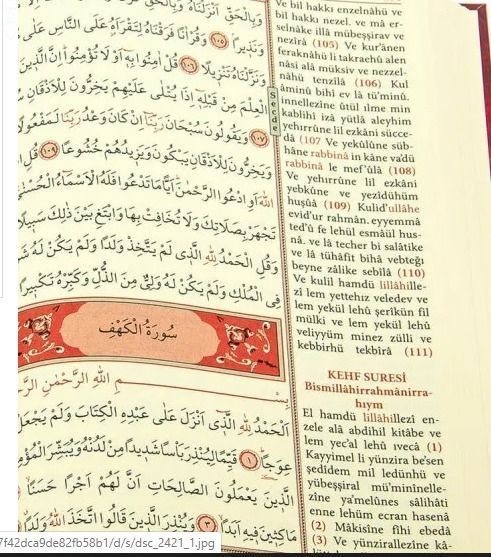 وَبِالْحَقِّ اَنْزَلْنَاهُ وَبِالْحَقِّ
وَنَذِيراً ﴿١٠٥﴾ وَقُرْاٰناً فَرَقْنَاهُ لِتَقْرَاَهُ عَلَى النَّاسِ عَلٰى
وَنَزَّلْنَاهُ تَنْزِيلاً ﴿١٠٦﴾ قُلْ اٰمِنُوا بِهِ اَوْ لَا تُؤْمِنُوا اِنَّ الَّذِينَ
الْعِلْمَ مِنْ قَبْلِهِ اِذَا يُتْلٰى عَلَيْهِمْ يَخِرُّونَ لِلْاَذْقَانِ
﴿١٠٧﴾ وَيَقُولُونَ سُبْحَانَ رَبِّنَا اِنْ كَانَ وَعْدُ رَبِّنَا لَمَفْعُولاً
وَيَخِرُّونَ لِلْاَذْقَانِ يَبْكُونَ وَيَزِيدُهُمْ خُشُوعاً ﴿١٠٩﴾ قُلِ
اللّٰهَ اَوِ ادْعُوا الرَّحْمٰنَ اَيًّا مَا تَدْعُوا فَلَهُ الْاَسْمَاءُ الْحُسْنٰى
تَجْهَرْ بِصَلَاتِكَ وَلَا تُخَافِتْ بِهَا وَابْتَغِ بَيْنَ ذٰلِكَ سَبِيلاً
وَقُلِ الْحَمْدُ لِلّٰهِ الَّذِي لَمْ يَتَّخِذْ وَلَداً وَلَمْ يَكُنْ لَهُ
فِي الْمُلْكِ وَلَمْ يَكُنْ لَهُ وَلِيٌّ مِنَ الذُّلِّ وَكَبِّرْهُ تَكْبِيراً
سُورَةُ الْكَهْفِ
بِسْمِ اللّٰهِ الرَّحْمٰنِ
اَلْحَمْدُ لِلّٰهِ الَّذِي اَنْزَلَ عَلٰى عَبْدِهِ الْكِتَابَ وَلَمْ يَجْعَلْ
عِوَجاً ﴿١﴾ قَيِّماً لِيُنْذِرَ بَأْساً شَدِيداً مِنْ لَدُنْهُ وَيُبَشِّرَ
الَّذِينَ يَعْمَلُونَ الصَّالِحَاتِ اَنَّ لَهُمْ اَجْراً حَسَناً
مَاكِثِينَ فِيهِ اَبَداً ﴿٣﴾ وَيُنْذِرَ الَّذِينَ قَالُوا اتَّخَذَ اللّٰهُ وَلَداً
Secde
Ve bil hakkı enzelnâhü ve
bil hakkı nezel. ve mâ er-
selnâke illâ mübeşşirav ve
nezîrâ (105) Ve kur'ânen
feraknâhü li takraehû alen
nâsi alâ müksiv ve nezzel-
nâhü tenzîlâ (106) Kul
âminû bihî ev lâ tü'minû.
innellezîne ûtül ılme min
kablihî izâ yütlâ aleyhim
yehırrûne lil ezkâni sücce-
dâ (107 Ve yekûlûne süb-
hâne rabbinâ in kâne va'dü
rabbinâ le mef'ûlâ (108)
Ve yehırrûne lil ezkâni
yebkûne ve yezîdühüm
huşûâ (109) Kulid'ullâhe
evid'ur rahmân. eyyemmâ
ted'û fe lehül esmâül hus-
nâ. ve lâ techer bi salâtike
ve lâ tühâfit bihâ vebteğı
beyne zâlike sebîlâ (110)
Ve kulil hamdü lillâhille-
zî lem yettehız veledev ve
lem yekül lehû şerîkün fil
mülki ve lem yekül lehû
veliyyüm minez zülli ve
kebbirhü tekbîrâ (111)
KEHF SURESİ
Bismillâhirrahmânirra-
hıym
El hamdü lillâhillezî en-
zele alâ abdihil kitâbe ve
lem yec'al lehû ıvecâ (1)
Kayyimel li yünzira be'sen
şedîdem mil ledünhü ve
yübeşşiral mü'minînelle-
zîne ya'melûnes sâlihâti
enne lehüm ecran hasenâ
(2) Mâkisîne fîhi ebedâ
(3) Ve yünzirallezîne kâ-
7f42dca9de82fb58b1/d/s/dsc_2421_1.jpg